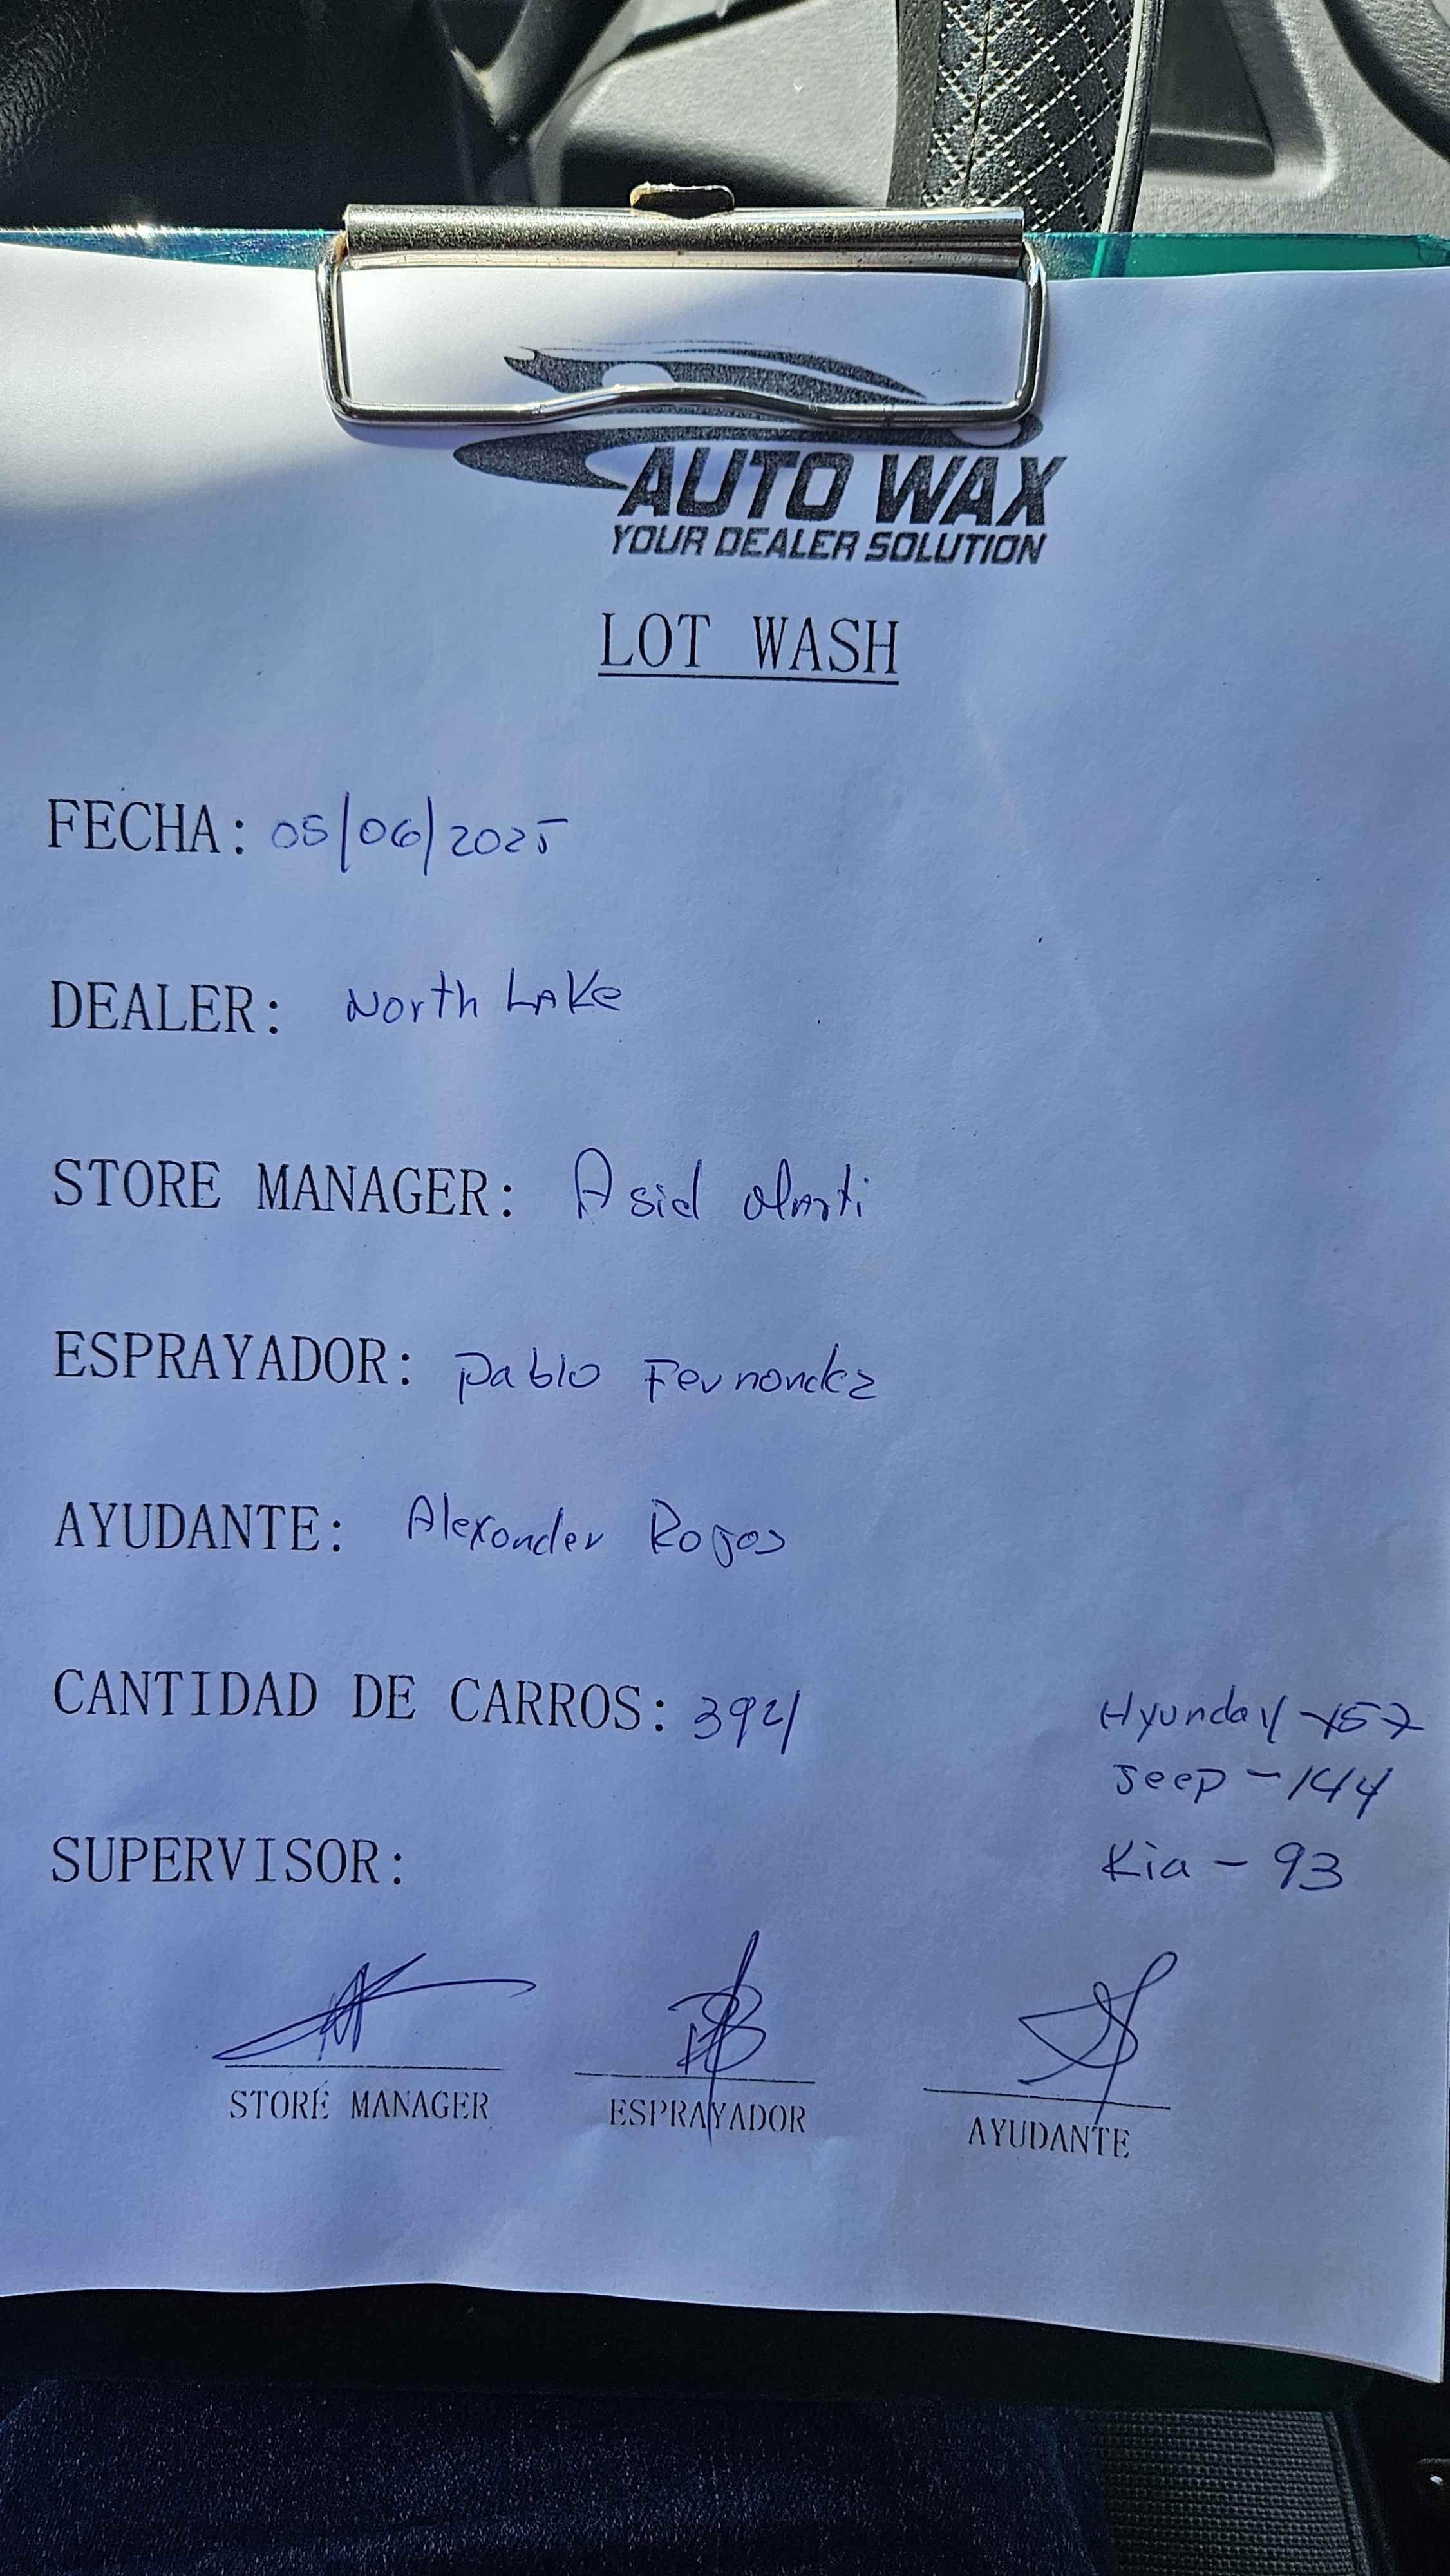 AUTO WAX
YOUR DEALER SOLUTION
LOT WASH
FECHA: 05/06/2025
DEALER: North Lake
STORE MANAGER: Asid
ESPRAYADOR: Pablo Fernondez
AYUDANTE: Alexonder Rojos
CANTIDAD DE CARROS: 394
Hyunday - 157
Jeep - 144
Kia - 93
SUPERVISOR:
STORE MANAGER ESPRAYADOR AYUDANTE